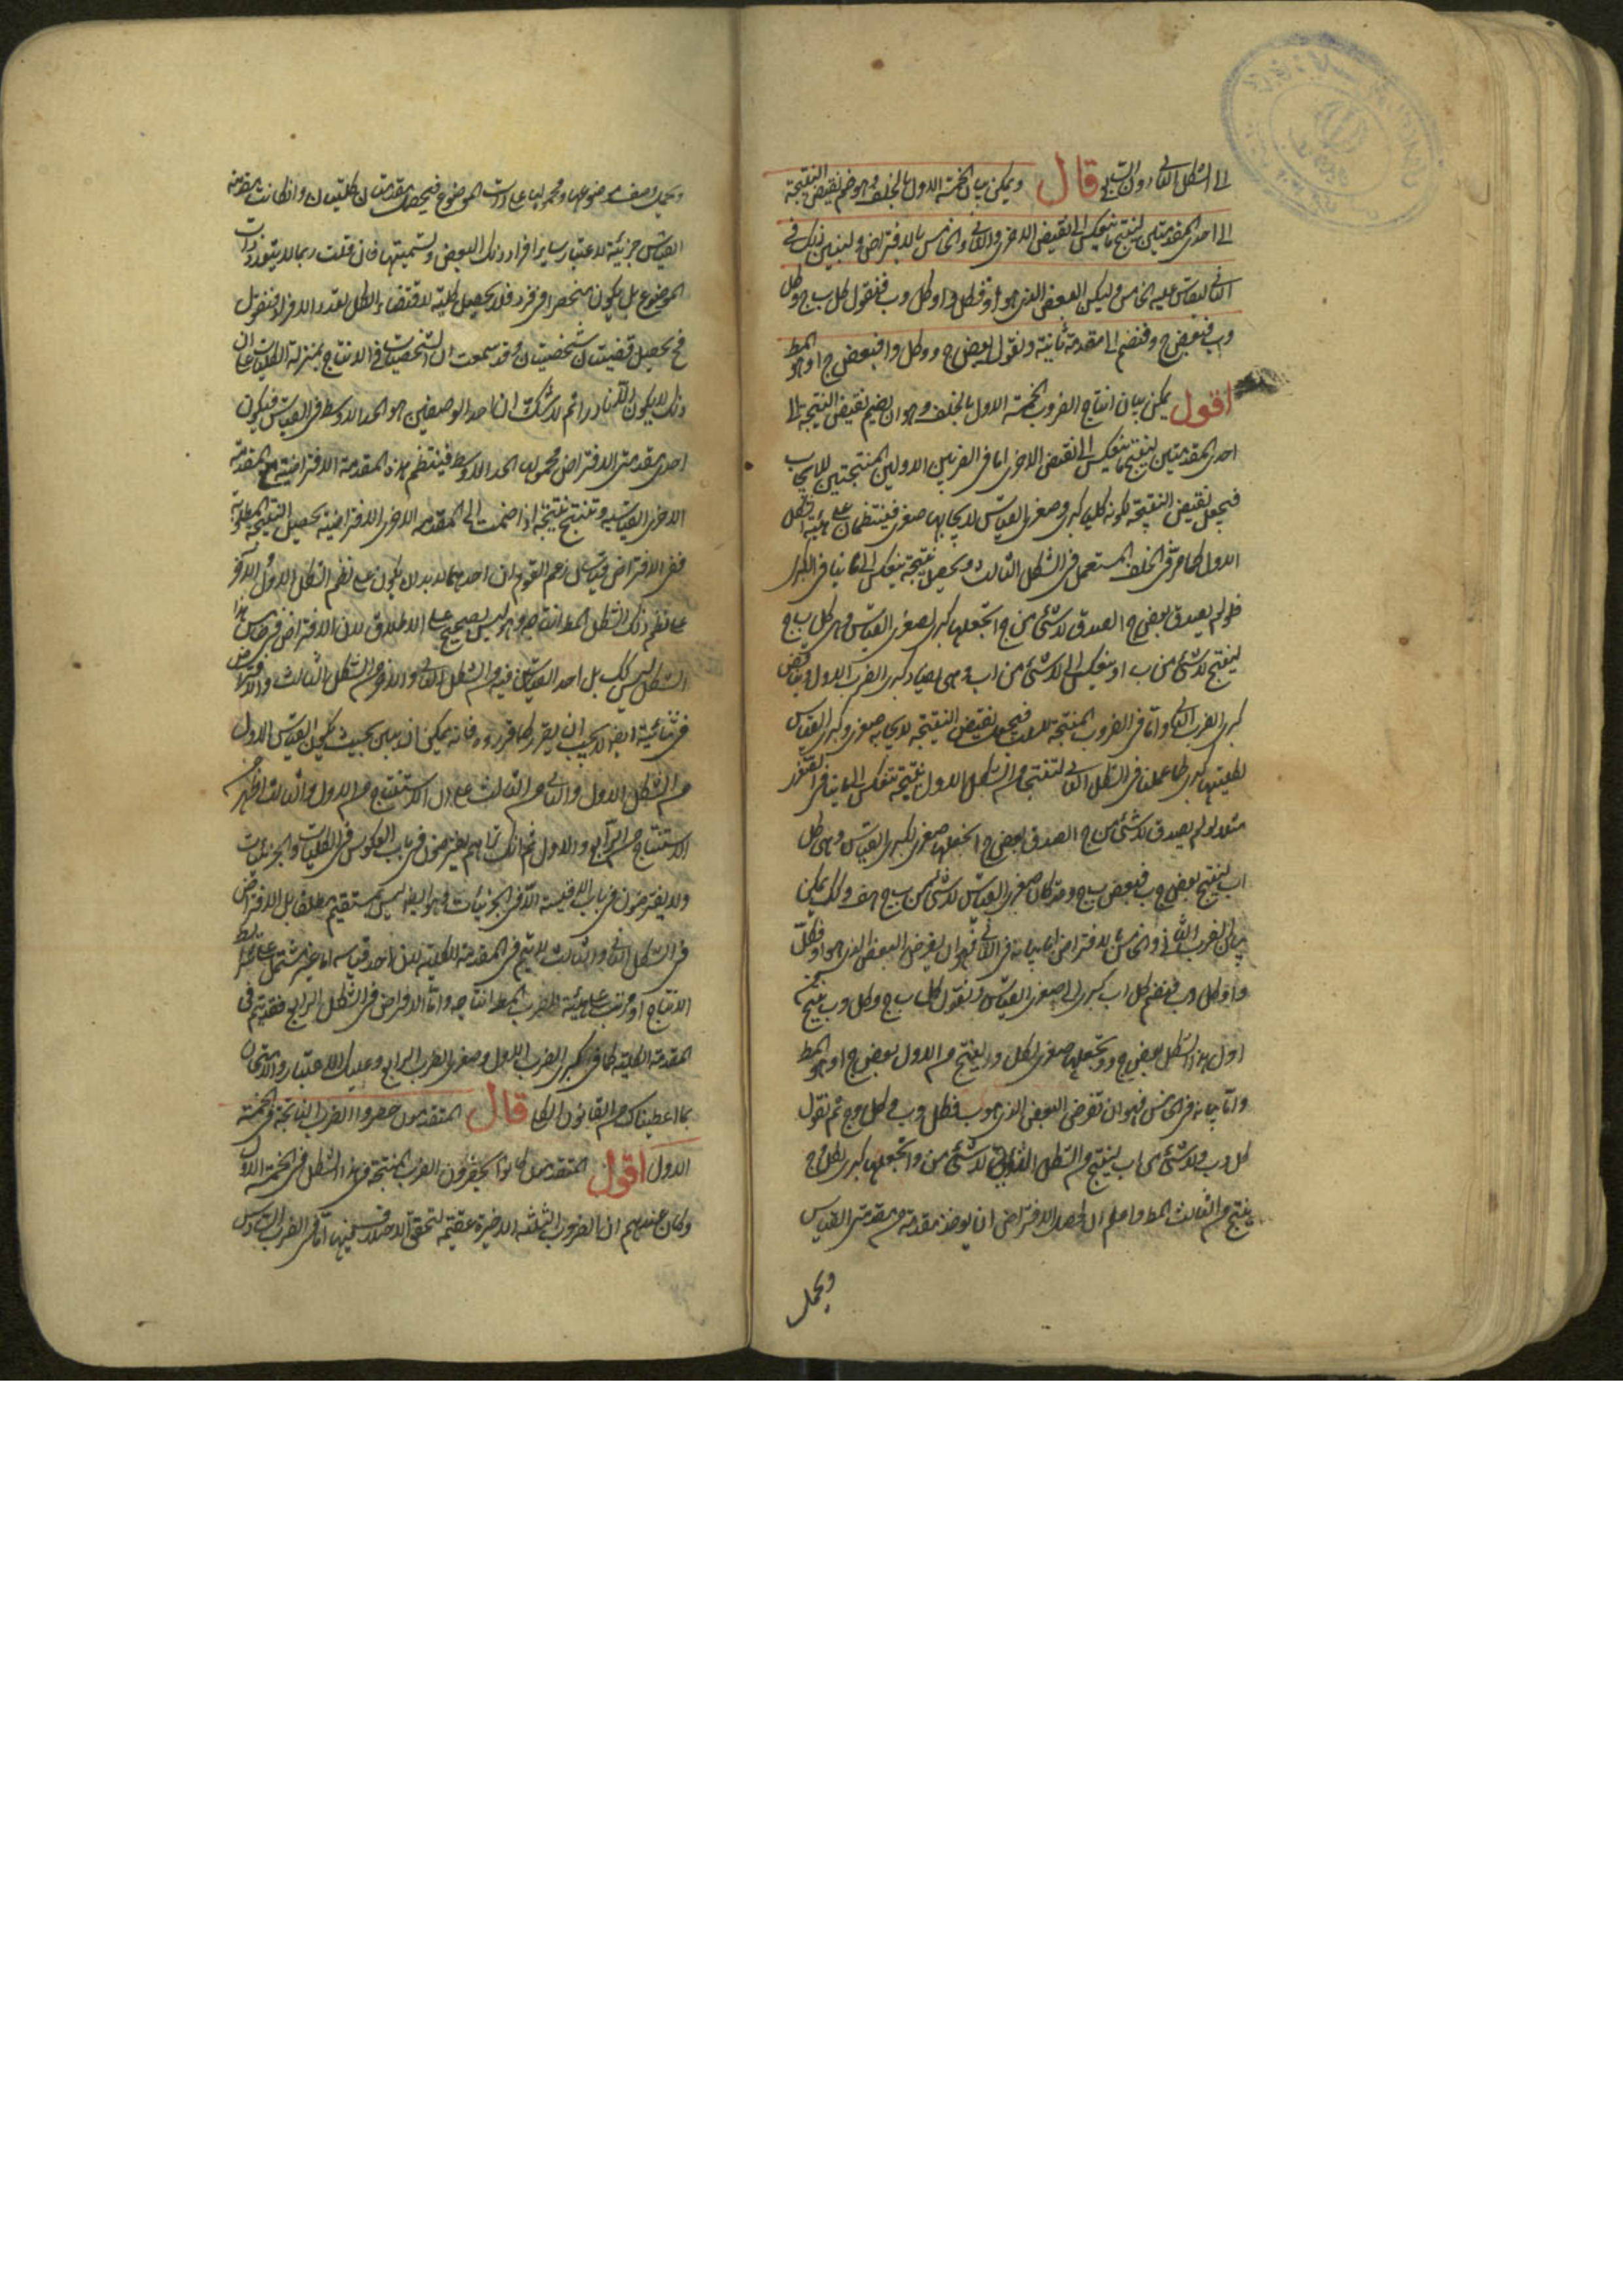 الى الشكل الثانى دون السابع قال ويمكن بيان الخمسة الاول بالخلف وهو ضم نقيض النتيجة
الى احدى المقدمتين لينتج ما ينعكس الى نقيض الاخرى والثانى والخامس بالافتراض ولنبين ذلك فى
الثانى ليقاس عليه الخامس وليكن البعض الذى هو ا د فكل د ا وكل د ب فنقول كل ب ج وكل
د ب فبعض ج د فنضم الى مقدمة ثانية ونقول بعض ج د وكل د ا فبعض ج ا وهو المط
اقول يمكن بيان انتاج الضروب الخمسة الاول بالخلف وهو ان يضم نقيض النتيجة الى
احدى المقدمتين لينتج ما ينعكس الى نقيض الاخرى اما فى الضربين الاولين المنتجين للايجاب
فيجعل نقيض النتيجة لكونه كليا كبرى وصغرى القياس لايجابها صغرى فينتظمان على هيئة الشكل
الاول كما مر فى الخلف المستعمل فى الشكل الثالث ويحصل نتيجة ينعكس الى ما ينافى الكبرى
فلو لم يصدق بعض ج ا لصدق لا شئ من ج ا نجعلها كبرى لصغرى القياس وهى كل ب ج
لينتج لا شئ من ب ا وينعكس الى لا شئ من ا ب وهى يضاد كبرى الضرب الاول ويناقض
كبرى الضرب الثانى واما فى الضروب المنتجة للسلب فيجعل نقيض النتيجة لايجابه صغرى وكبرى القياس
لكليتها كبرى كما عملنا فى الشكل الثانى لينتج من الشكل الاول نتيجة تنعكس الى ما ينافى الصغرى
مثلا لو لم يصدق لا شئ من ج ا لصدق بعض ج ا نجعلها صغرى لكبرى القياس وهى كل
ا ب لينتج بعض ج ب فبعض ب ج وقد كان صغرى القياس لا شئ من ب ج هف وكذلك يمكن
بيان الضرب الثانى والخامس بالافتراض اما بيانه فى الثانى فهو ان يفرض البعض الذى هو ا د فكل
د ا وكل د ب فنضم كل د ب كبرى الى صغرى القياس ونقول كل ب ج وكل د ب ينتج من
اول هذا الشكل بعض ج د ونجعلها صغرى لكل د ا لينتج من الاول بعض ج ا وهو المط
واما بيانه فى الخامس فهو ان نفرض البعض الذى هو ب د فكل د ب وكل د ج ثم نقول
كل د ب ولا شئ من ا ب لينتج من الشكل الثانى لا شئ من د ا نجعلها كبرى لكل د ج
ينتج من الثالث المط واعلم ان محصل الافتراض ان يؤخذ مقدمة من مقدمتى القياس
ويحمل
ويحمل وصف موضوعها ومحمولها على ذات الموضوع فيحصل مقدمتان كليتان وان كانت مقدمة
القياس جزئية لاعتبار ساير افراد ذلك البعض وتسميتها فان قلت ربما لا يتعدد ذات
الموضوع بل يكون منحصرا فى فرد فلا يحصل كلية لاقتضاء الكل تعدد الافراد فنقول
فح يحصل قضيتان شخصيتان وقد سمعت ان الشخصيات فى الانتاج بمنزلة الكليات على ان
ذلك لا يكون الا نادرا ثم لا شك ان احد الوصفين هو الحد الاوسط فى القياس فيكون
احدى مقدمتى الافتراض محمولها الحد الاوسط فينتظم هذه المقدمة الافتراضية مع المقدمة
الاخرى القياسية وتنتج نتيجة اذا ضمت الى المقدمة الاخرى الافتراضية يحصل النتيجة المطلوبة
ففى الافتراض قياسان زعم القوم ان احدهما لا بد ان يكون على نظم الشكل الاول والاخر
على نظم ذلك الشكل المط انتاجه وهو ليس بصحيح على الاطلاق لان الافتراض فى خامس هذا
الشكل ليس كك بل احد القياسين فيه من الشكل الثانى والاخر من الشكل الثالث والافتراض
فى ثانيه ايضا لا يجب ان يقرر كما قرروه فانه يمكن ان يبين بحيث يكون القياس الاول
من الشكل الاول والثانى من الثالث على ان الاستنتاج من الاول والثالث اظهر من
الاستنتاج من الرابع والاول ثم انك تراهم يفترضون فى باب العكوس فى الكليات والجزئيات
ولا يفترضون فى باب الاقيسة الا فى الجزئيات وهو ايضا ليس بمستقيم مطلقا بل الافتراض
فى الشكل الثانى والثالث لا يتم فى المقدمة الكلية لان احد قياسيه اما غير مشتمل على شرايط
الانتاج او مرتب على هيئة الضرب المط انتاجه واما الافتراض فى الشكل الرابع فقد يتم فى
المقدمة الكلية كما فى كبرى الضرب الاول وصغرى الضرب الرابع وعليك الاعتبار والامتحان
بما اعطيناك من القانون الكلى قال المتقدمون حصروا الضروب الناتجة فى الخمسة
الاول اقول المتقدمون كانوا يحصرون الضروب المنتجة فى هذا الشكل فى الخمسة الاول
وكان عندهم ان الضروب الثلثة الاخيرة عقيمة لتحقق الاختلاف فيها اما فى الضرب السادس